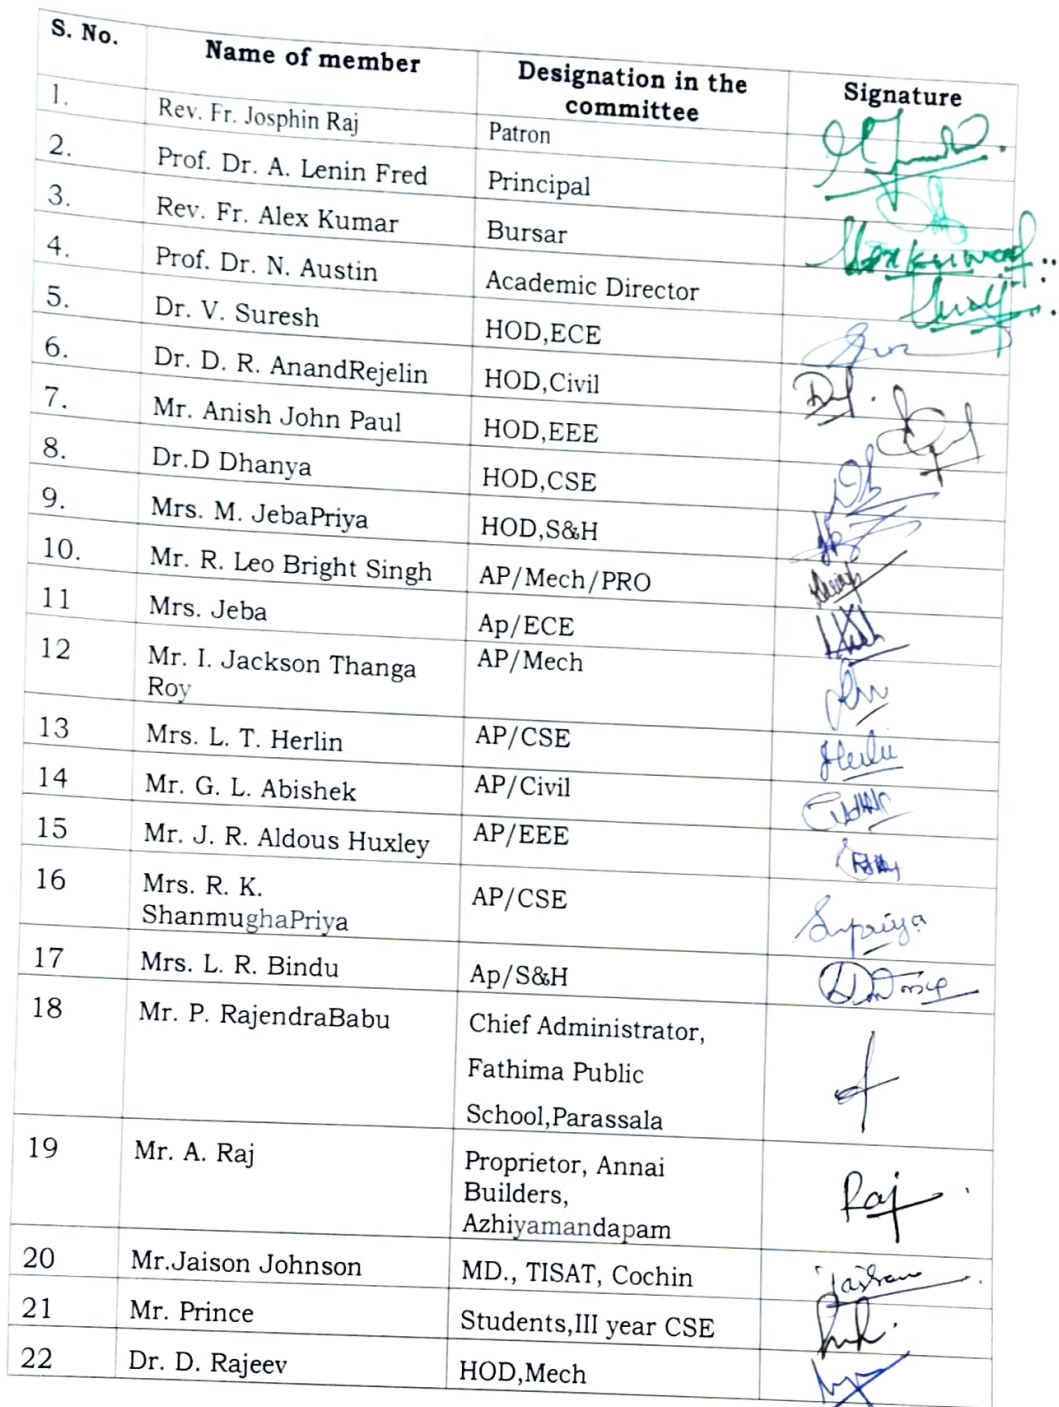 S. No. Name of member Designation in the Signature
committee
1. Rev. Fr. Josphin Raj Patron
2. Prof. Dr. A. Lenin Fred Principal
3. Rev. Fr. Alex Kumar Bursar
4. Prof. Dr. N. Austin Academic Director
5. Dr. V. Suresh HOD,ECE
6. Dr. D. R. AnandRejelin HOD,Civil
7. Mr. Anish John Paul HOD,EEE
8. Dr.D Dhanya HOD,CSE
9. Mrs. M. JebaPriya HOD,S&H
10. Mr. R. Leo Bright Singh AP/Mech/PRO
11 Mrs. Jeba Ap/ECE
12 Mr. I. Jackson Thanga AP/Mech
Roy
13 Mrs. L. T. Herlin AP/CSE
14 Mr. G. L. Abishek AP/Civil
15 Mr. J. R. Aldous Huxley AP/EEE
16 Mrs. R. K. AP/CSE
ShanmughaPriya
17 Mrs. L. R. Bindu Ap/S&H
18 Mr. P. RajendraBabu Chief Administrator,
Fathima Public
School,Parassala
19 Mr. A. Raj Proprietor, Annai
Builders, Raj
Azhiyamandapam
20 Mr.Jaison Johnson MD., TISAT, Cochin
21 Mr. Prince Students,III year CSE
22 Dr. D. Rajeev HOD,Mech